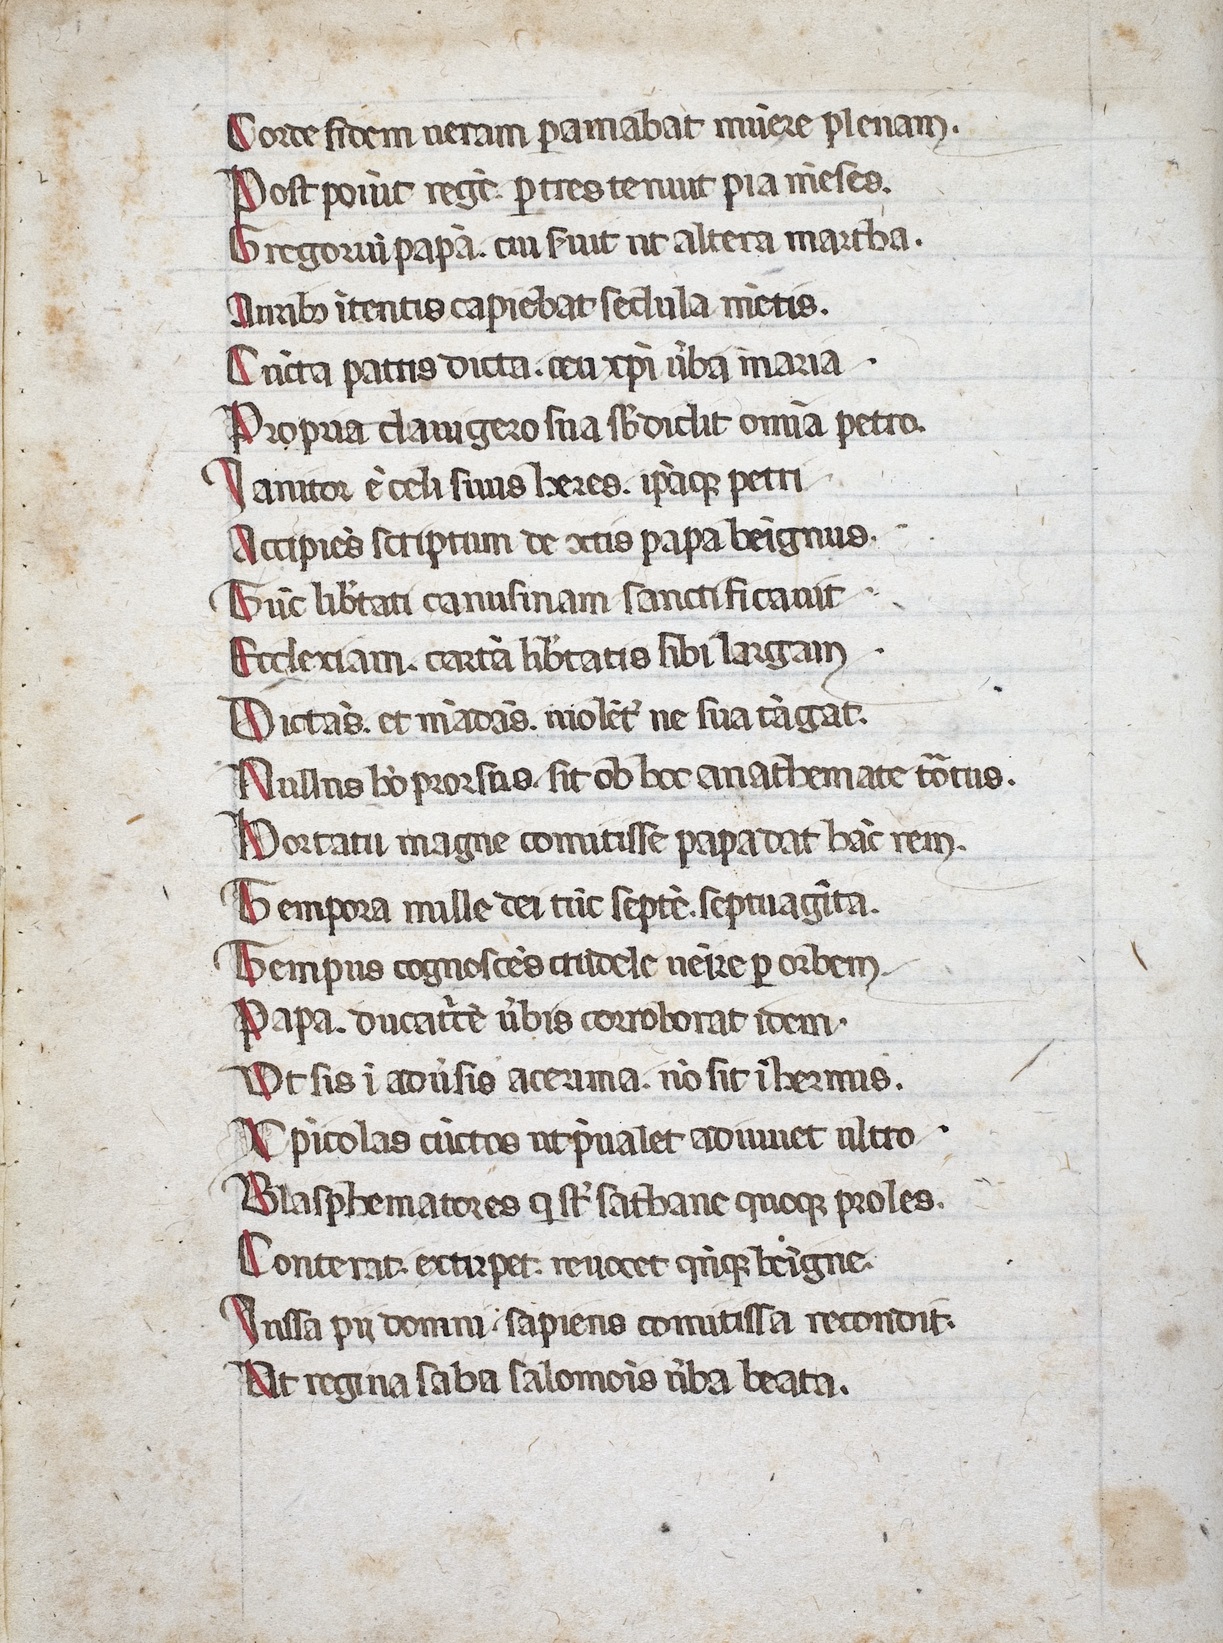 Corde fidem ueram peramabat mūere plenam.
Post poṅit regē. ꝑ tres tenuit pia mēses.
Gregoriū papā. cui ẜuit ut altera martha.
Auribꝫ ītentis capiebat sedula mētis.
Cūcta patris dicta. ceu xp̄i ūba maria.
Propria clauigero sua sb̄didit omīa petro.
Ianitor ē celi suus heres. ip̄aqꝫ petri
Accipiēs scriptum de xtis papa beīgnus.
Tūc lib̄tati canusinam sanctificauit.
Ecclexiam. cartā lib̄tatis sibi largam.
Dictās. et mādās. uiolēt᷑ ne sua tāgat.
Nullus hō prorsus. sit ob hoc anathemate tōtus.
Hortatu magne comitisse papa dat hāc rem.
Tempora mille dei tūc septē. septuagīta.
Tempus cognoscēs crudele uēire ꝑ orbem.
Papa. ducat᷑cē ūbis corroborat idem.
Vt sis ī adūsis acerima. nō sit īhermis.
Xp̄icolas cūctos ut p̄ualet adiuuet ultro.
Blasphematores q̄ st̄ sathane quoqꝫ proles.
Conterat. extirpet. reuocet q̄nqꝫ beīgne.
Iussa pij domni. sapiens comitissa recondit.
Vt regina saba salomōis ūba beata.